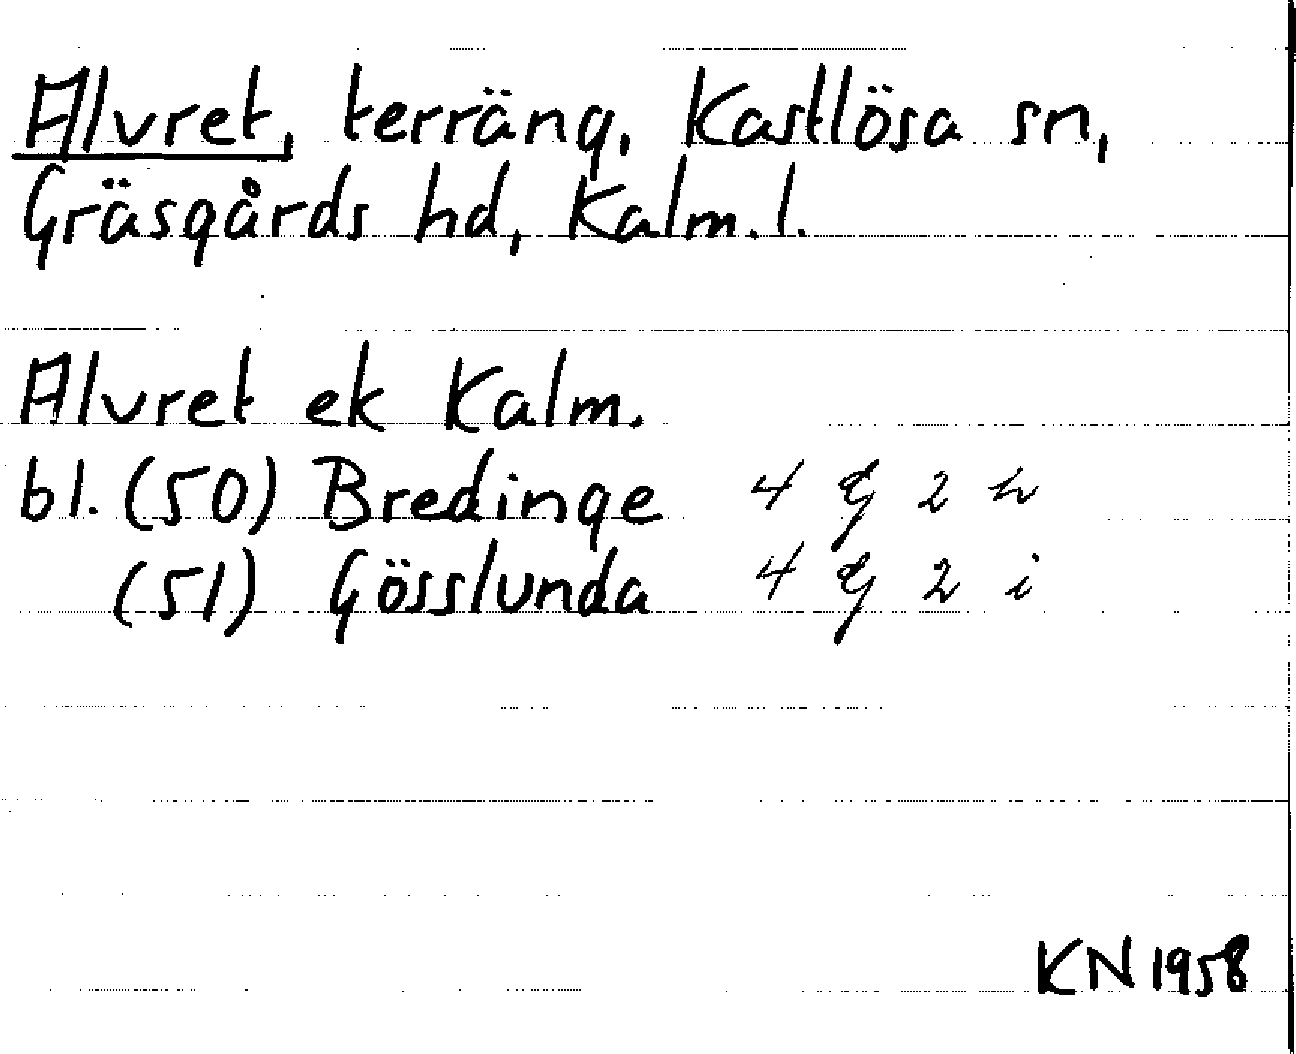 Alvret, terräng, Kastlösa sn,
Gräsgårds hd, Kalm. l.
Alvret ek Kalm.
bl. (50) Bredinge 4 G 2 h
(51) Gösslunda 4 G 2 i
KN 1958